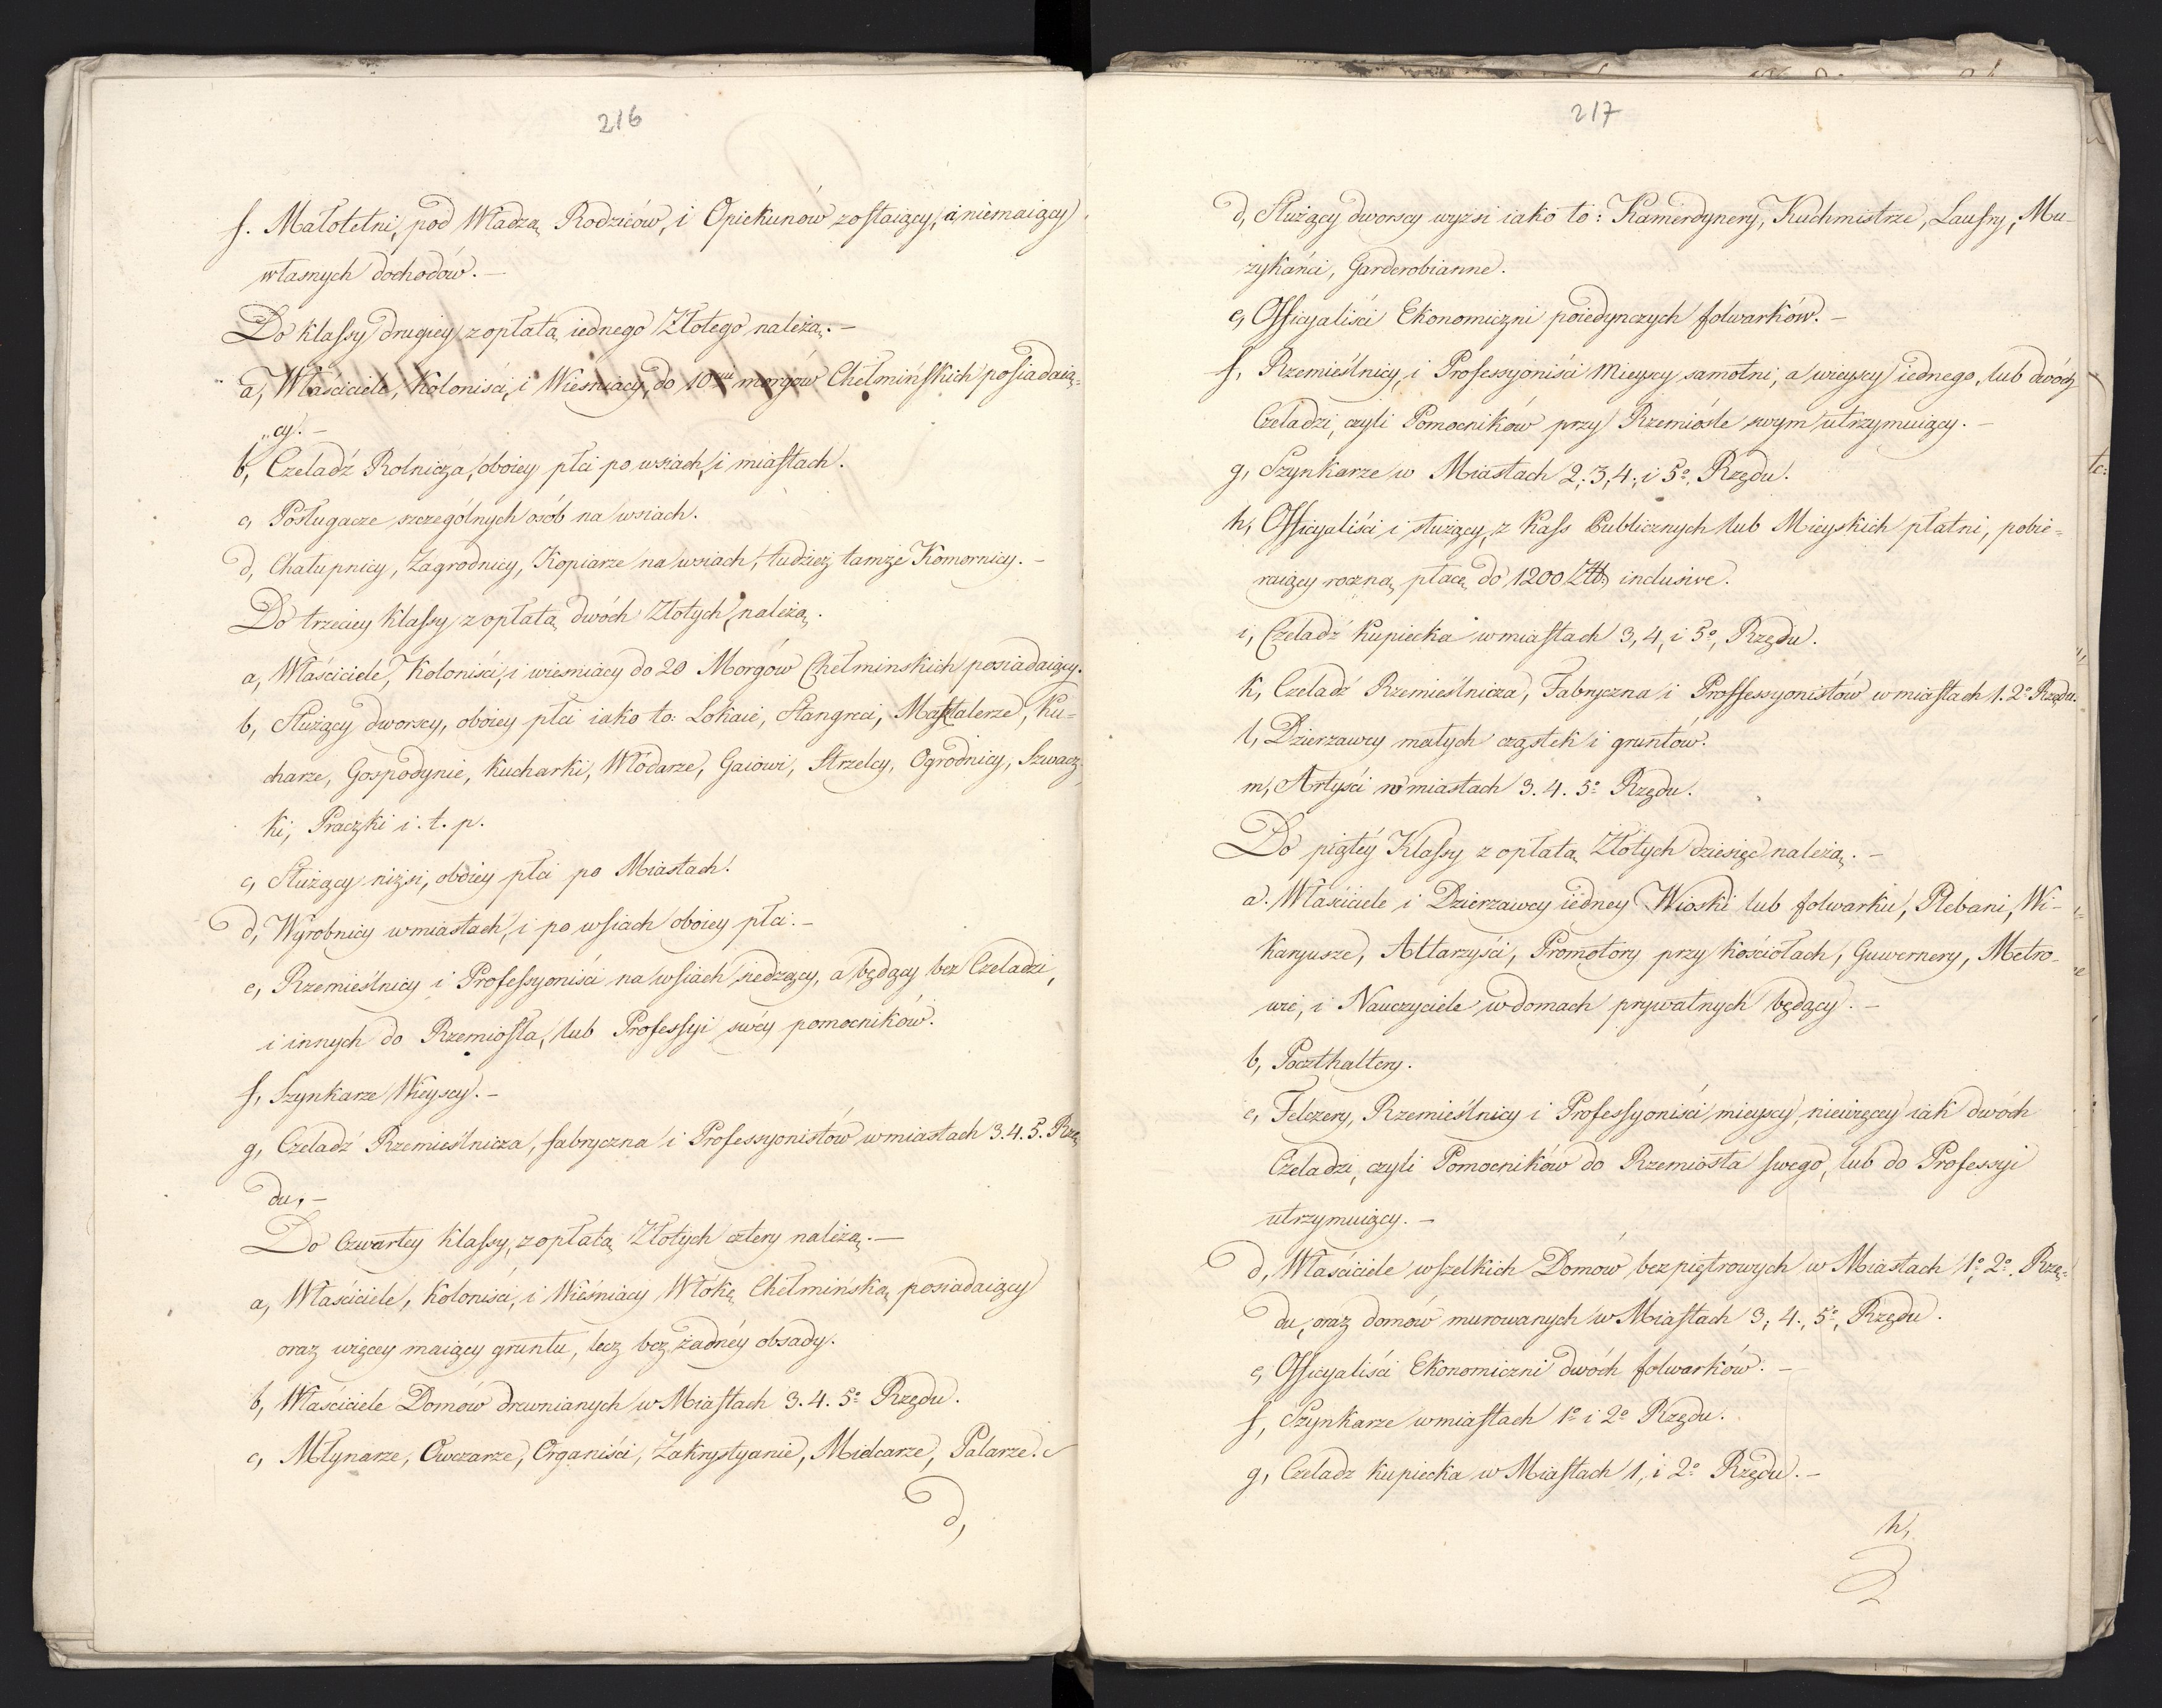 216
f. Małoletni, pod Władzą Rodziców, i Opiekunów zostaiący, i niemaiący
własnych dochodów. —
Do klassy drugiey z opłatą iednego Złotego należą. —
a, Właściciele, Koloniści, i Wieśniacy, do 10ciu morgów Chełmińskich posiadaią=
„cy. —
b, Czeladź Rolnicza, oboiey płci po wsiach, i miastach.
c, Posługacze szczególnych osób na wsiach.
d, Chałupnicy, Zagrodnicy, Kopiarze na wsiach, tudzież tamże Komornicy. —
Do trzeciey klassy z opłatą dwóch Złotych należą.
a, Właściciele, Koloniści, i wieśniacy do 20 Morgów Chełminskich posiadaiący.
b, Służący dworscy, oboiey płci iako to: Lokaie, Stangreci, Masztalerze, Ku=
charze, Gospodynie, Kucharki, Włódarze, Gaiowi, Strzelcy, Ogrodnicy, Szwacz
ki, Praczki i. t. p.
c, Służący niżsi, oboiey płci po Miastach.
d, Wyrobnicy w miastach, i po wsiach oboiey płci. —
e, Rzemieślnicy i Professyoniści na wsiach siedzący, a będący bez Czeladzi,
i innych do Rzemiosła, lub Professyi swéy pomocników.
f, Szynkarze Wieyscy. —
g, Czeladź Rzemieślnicza, fabryczna i Professyonistów w miastach 3. 4. 5. Rzę
du. —
Do Czwartey klassy, z opłatą Złotych cztery należą. —
a, Właściciele, Koloniści, i Wieśniacy Włókę Chełmińską posiadaiący
oraz więcey maiący gruntu, lecz bez żadnéy obsady.
b, Właściciele Domów drewnianych w Miastach 3. 4. 5º Rzędu.
c, Młynarze, Owczarze, Organiści, Zakrystyanie, Mielcarze, Palarze.
d,
217
d, Służący dworscy wyżsi iako to: Kamerdynery, Kuchmistrze, Laufry, Mu-
zykańci, Garderobianne.
e, Officyaliści Ekonomiczni poiedynczych folwarków. —
f, Rzemieślnicy, i Professyoniści Mieyscy samotni, a wieyscy iednego, lub dwóch
Czeladzi, czyli Pomocników przy Rzemiośle swym utrzymuiący. —
g, Szynkarze w Miastach 2, 3, 4, i 5º, Rzędu.
h, Officyaliści i służący, z Kass Publicznych lub Mieyskich płatni, pobie=
raiący roczną płacę do 1200 Złł. inclusive.
i, Czeladź Kupiecka w miastach 3, 4, i 5º, Rzędu.
k, Czeladź Rzemieślnicza, Fabryczna i Proffessyonistów w miastach 1. 2º Rzędu.
l, Dzierzawcy małych cząstek i gruntów.
m, Artyści w miastach 3. 4. 5º Rzędu.
Do piątéy Klassy z opłatą Złotych dziesięć należą. —
a. Właściciele i Dzierzawcy iedney Wioski lub folwarku, Plebani, Wi-
karyusze, Altarzyści, Promotory przy kościołach, Guwernery, Metro-
wie, i Nauczyciele w domach prywatnych będący. —
b, Poczthaltery.
c, Felczery, Rzemieślnicy i Professyoniści mieyscy, niewięcey iak dwóch
Czeladzi, czyli Pomocników do Rzemiosła swego, lub do Professyi
utrzymuiący. —
d, Właściciele wszelkich Domów bezpiętrowych w Miastach 1º, 2º, Rzę=
du, oraz domów murowanych w Miastach 3, 4., 5º, Rzędu.
e, Officyaliści Ekonomiczni dwóch folwarków. —
f, Szynkarze w miastach 1º i 2º Rzędu.
g, Czeladz Kupiecka w Miastach 1, i 2º Rzędu. —
h,